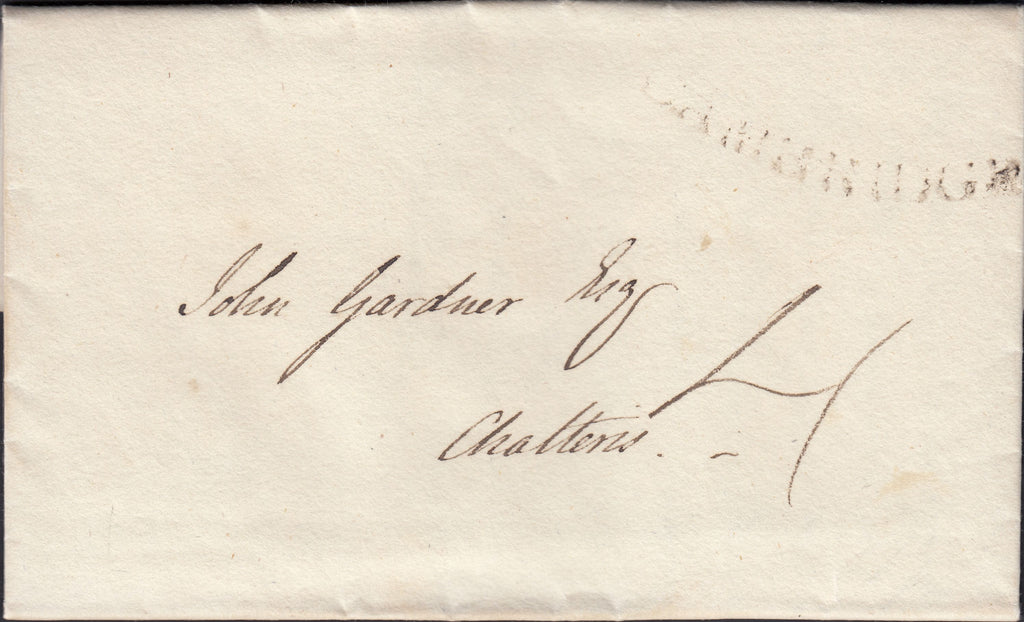 John Gardner Esq
Chatteris. -
4